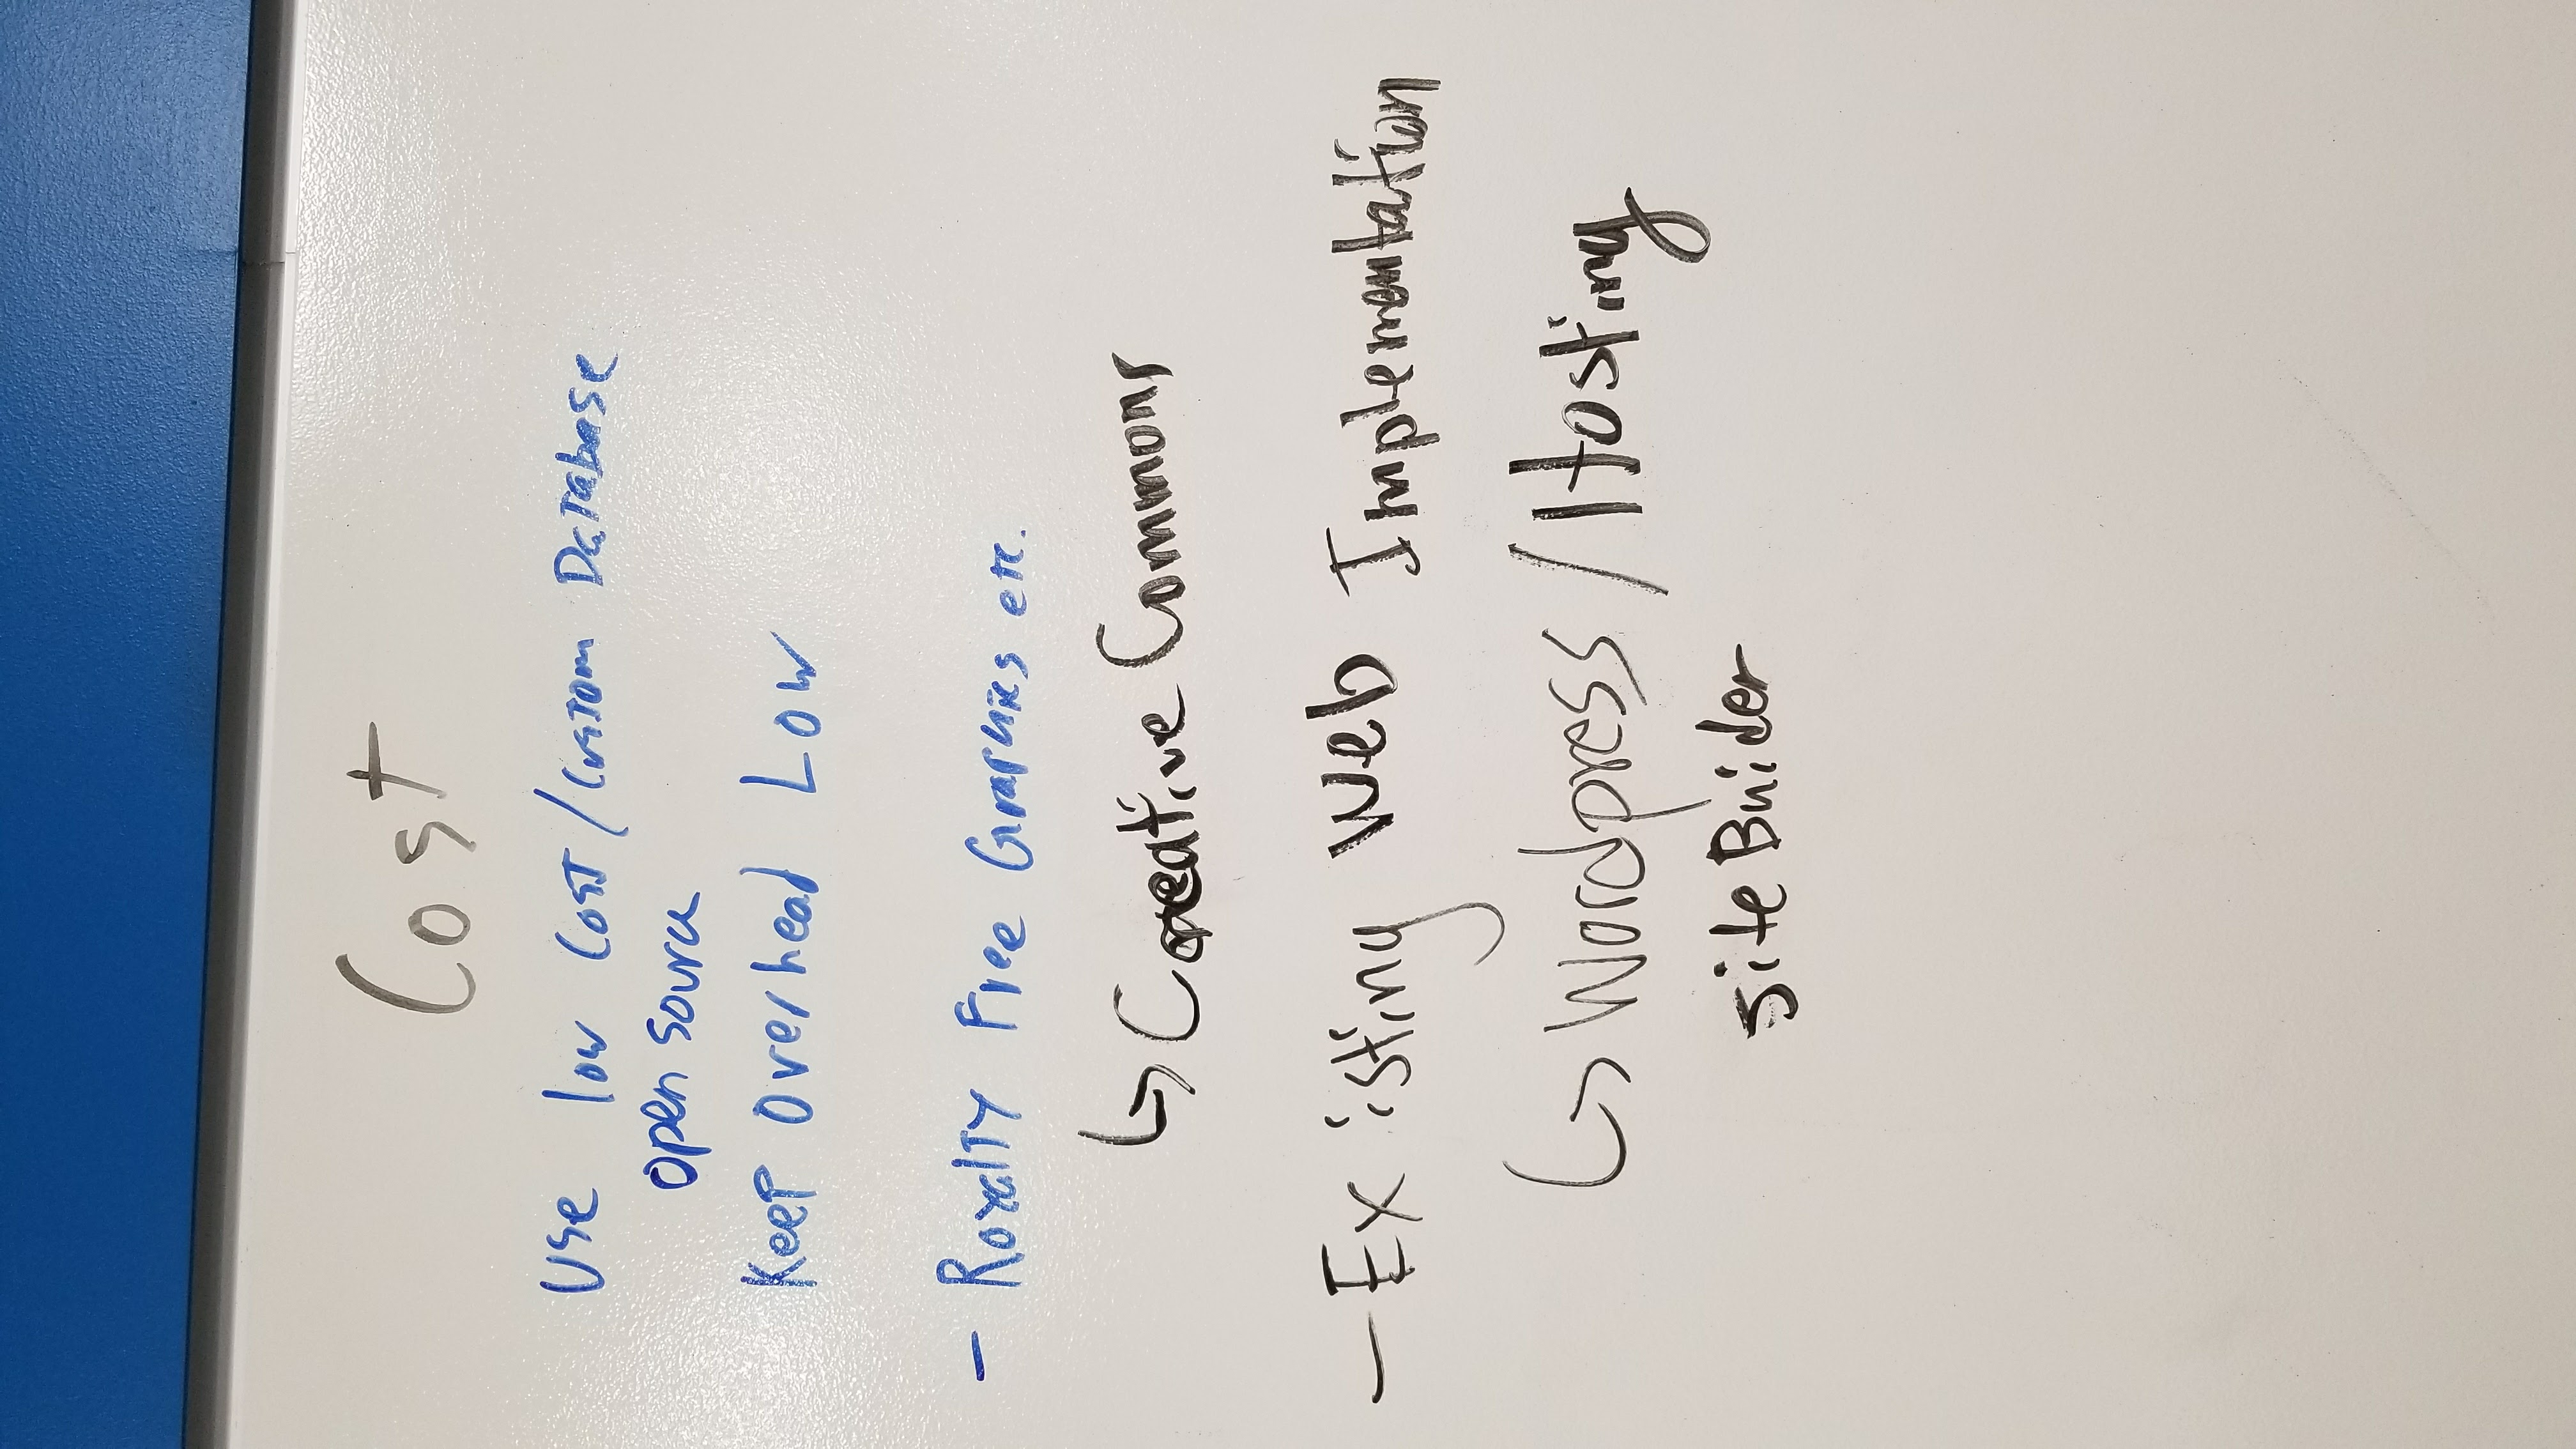 Cost
Use low Cost/Custom Database
open source
Keep Overhead Low
- Royalty Free Graphics etc.
↳ Creative Commons
- Existing Web Implementation
↳ Wordpress / Hosting
site Buider